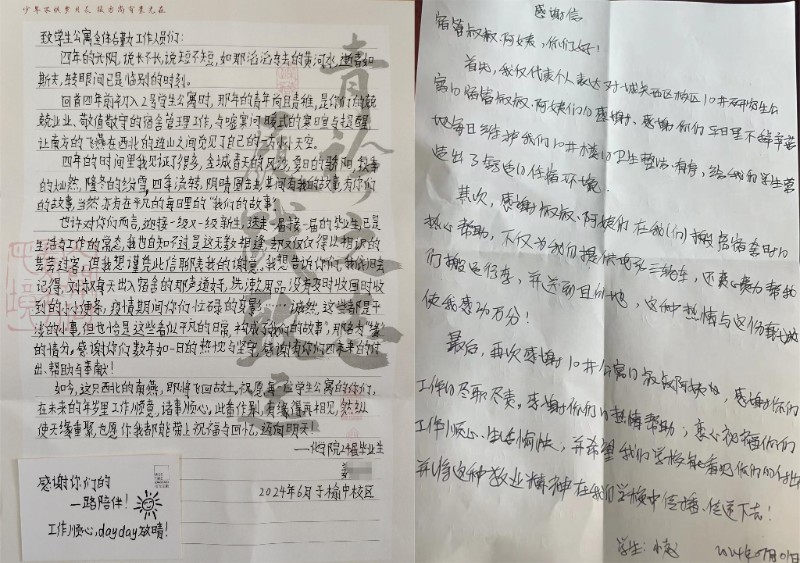 少年不惧岁月长 彼方尚有荣光在
致学生公寓全体后勤工作人员们:
四年的光阴,说长不长,说短不短,如那滔滔东去的黄河水,逝者如
斯夫,转眼间已是临别的时刻。
回首四年前初入2号学生公寓时,那年的青年尚且青稚,是你们的兢兢
业业、敬值敬守的宿舍管理工作,与嘘寒问暖式的寒日宜与提醒,
让南方的飞燕在西北的连山之间觅见了自己的一方树木天空。
四年的时间里我见证了很多,金城春天的风沙,夏日的骄阳,秋季
的灿然,隆冬的纷雪,四季流转,阴晴圆缺,其间有我的故事,有你们
的故事,当然,亦有在平凡的每日里的"我们的故事"。
也许对你们而言,迎接一级又一级新生,送走一届接一届的毕业生,已是
生活与工作的常态,我也自知不过是这无数相逢、却又仅仅得以相识的
芸芸过客,但我想谨凭此信聊表我的谢意。我想告诉你们,我依旧会
记得,刘叔每天出入宿舍的那声道好,洗漱用品没有及时收回时收
到的小小便条,疫情期间你们忙碌的身影……诚然,这些都是平
淡的小事,但也恰是这些看似平凡的日常,构成了我们的故事,那名为"缘"
的情分。感谢你们数年如一日的热忱与坚守,感谢有你们四年来的付
出、帮助与奉献!
如今,这只西北的南燕,即将飞回故土,祝愿每一位学生公寓的你们,
在未来的年岁里工作顺意,诸事顺心,此番作别,有缘得再相见,然纵
使天缘重聚,也愿你我都能带上祝福与回忆,迈向明天!
——化学院24届毕业生
姜
2024年6月于榆中校区
感谢你们的
一路陪伴!
工作顺心,day day 放晴!
感谢信
宿管叔叔、阿姨,你们好!
首先,我仅代表个人表达对城关西区校区10#研究生公
寓的宿管叔叔、阿姨们的感谢、感谢你们平日里不辞辛苦
地每日维护我们10#楼的卫生整洁、有序,给我们学生营
造出了舒适的住宿环境。
其次,感谢叔叔、阿姨们在我(们)搬宿宿舍时的
热心帮助,不仅为我们提供电动三轮车,还衷心卖力帮我
们搬运行李,并送到目的地,这种热情与这份举动
使我感动万分!
最后,再次感谢10#公寓的叔叔阿姨们,感谢你们
工作的尽职尽责,感谢你们的热情帮助,衷心祝福你们
工作顺心、生活愉快,并希望我们学校能看到你们的付出
并将这种敬业精神在我们学校中传播、传递下去!
学生:
2024年07月01日